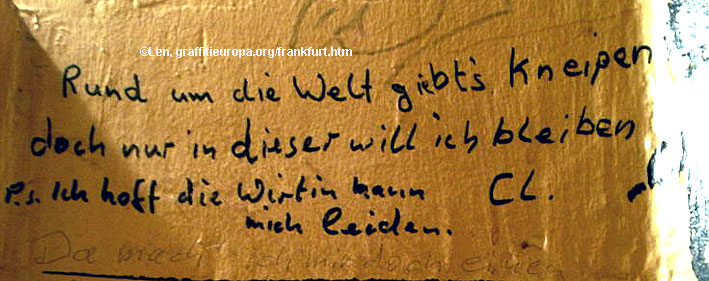 ©Len, graffitieuropa.org/frankfurt.htm
Rund um die Welt giebt's Kneipen
doch nur in dieser will ich bleiben
P.s. Ich hoff die Wirtin kann CL.
mich leiden.
Da mach ich mir doch einen